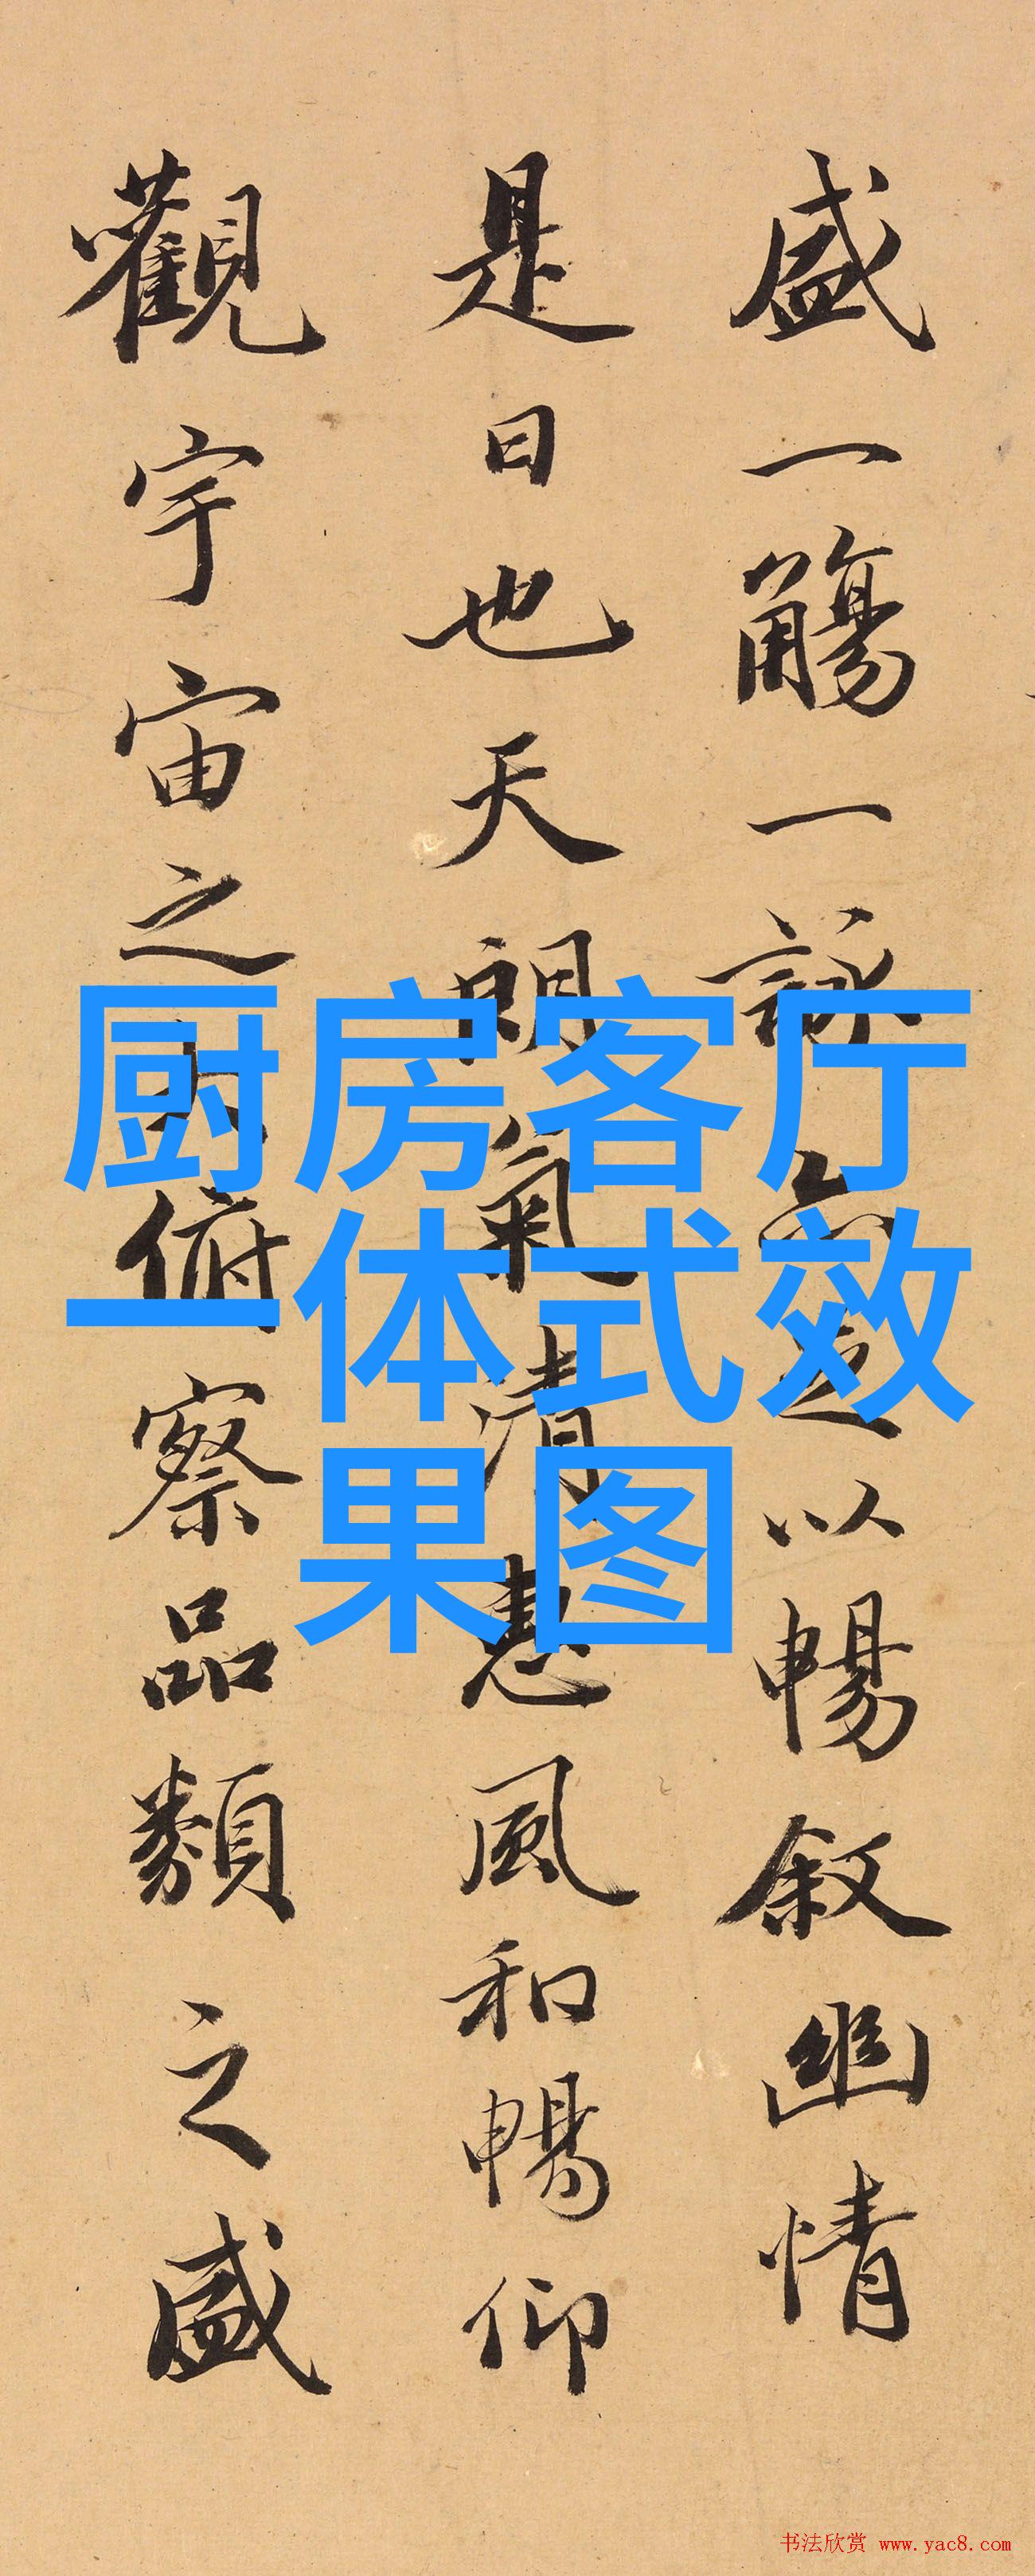 盛一觴一詠亦足以暢叙幽情
是日也天朗氣清惠風和暢仰
觀宇宙之大俯察品類之盛
厨房客厅
一体式效
果图
书法欣赏 www.yac8.com